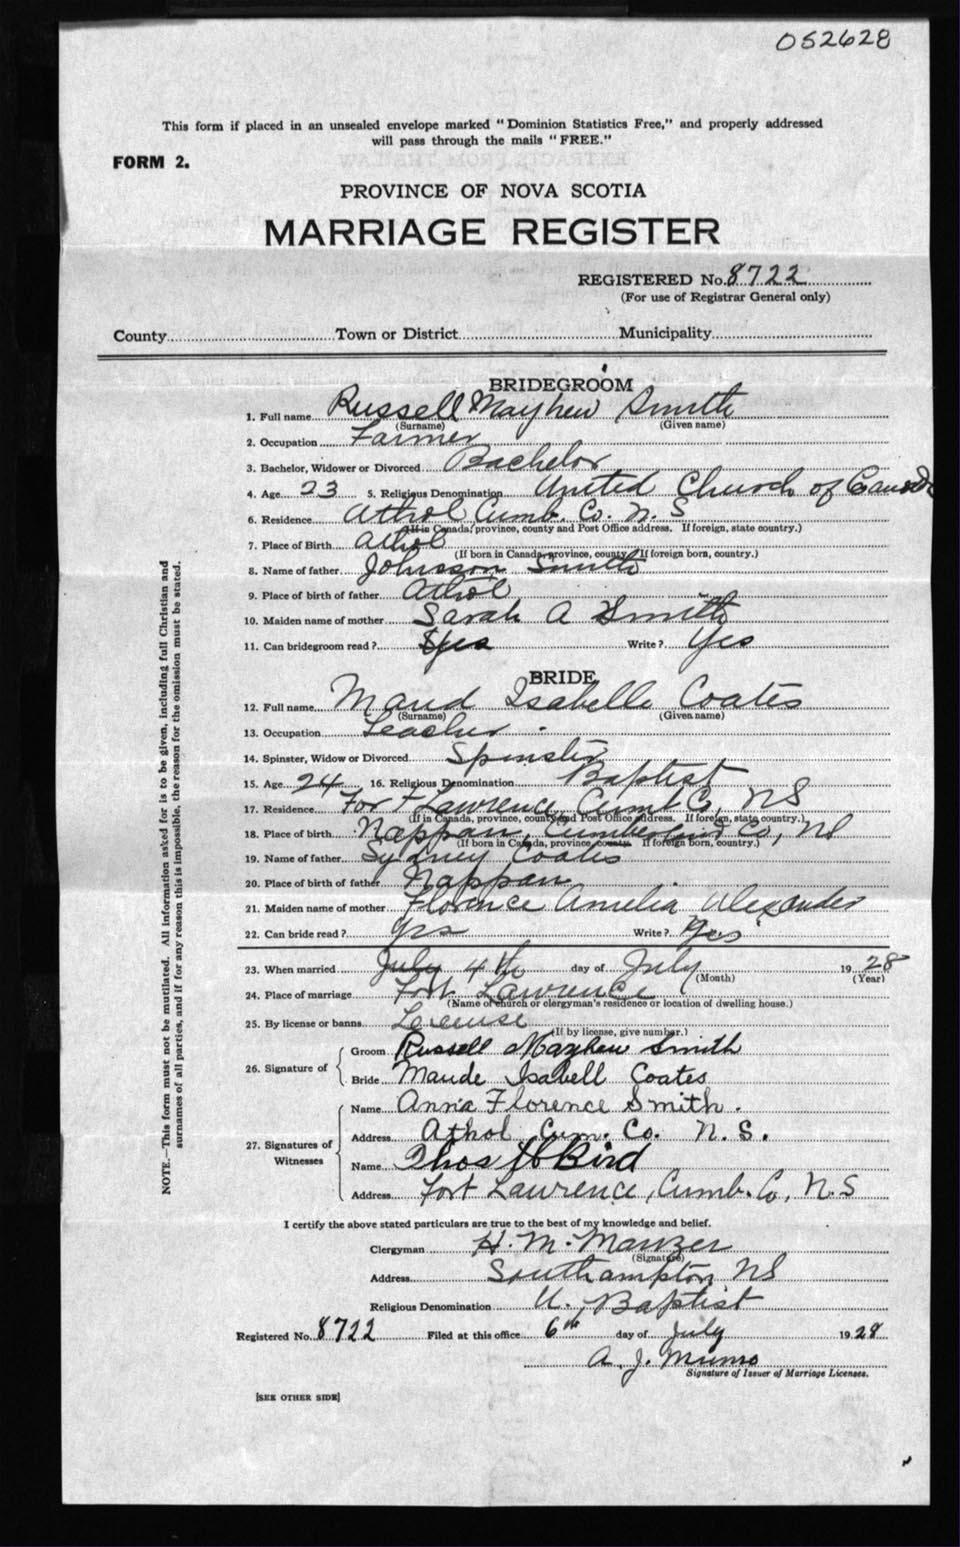 052628
This form if placed in an unsealed envelope marked "Dominion Statistics Free," and properly addressed
will pass through the mails "FREE."
FORM 2.
PROVINCE OF NOVA SCOTIA
MARRIAGE REGISTER
REGISTERED No. 8722
(For use of Registrar General only)
County Town or District Municipality
BRIDEGROOM
1. Full name Russell Mayhew Smith
(Surname) (Given name)
2. Occupation Farmer
3. Bachelor, Widower or Divorced Bachelor
4. Age 23 5. Religious Denomination United Church of Canada
6. Residence Athol Cumb. Co. N. S
(If in Canada, province, county and Post Office address. If foreign, state country.)
7. Place of Birth Athol
(If born in Canada, province, county. If foreign born, country.)
8. Name of father Johnson Smith
9. Place of birth of father Athol
10. Maiden name of mother Sarah A Smith
11. Can bridegroom read? Yes Write? Yes
BRIDE
12. Full name Maud Isabelle Coates
(Surname) (Given name)
13. Occupation Teacher
14. Spinster, Widow or Divorced Spinster
15. Age 24 16. Religious Denomination Baptist
17. Residence Fort Lawrence, Cumb Co, NS
(If in Canada, province, county and Post Office address. If foreign, state country.)
18. Place of birth Nappan, Cumberland Co, NS
(If born in Canada, province, county. If foreign born, country.)
19. Name of father Sydney Coates
20. Place of birth of father Nappan
21. Maiden name of mother Florence Amelia Alexander
22. Can bride read? Yes Write? Yes
23. When married July 4th day of July 1928
(Month) (Year)
24. Place of marriage Fort Lawrence
(Name of church or clergyman's residence or location of dwelling house.)
25. By license or banns License
(If by license, give number.)
26. Signature of
Groom Russell Mayhew Smith
Bride Maude Isabell Coates
27. Signatures of Witnesses
Name Annie Florence Smith.
Address Athol Cum. Co. N. S.
Name Thos H Bird
Address Fort Lawrence, Cumb. Co, N. S
I certify the above stated particulars are true to the best of my knowledge and belief.
Clergyman H. M. Manzer
(Signature)
Address Southampton, NS
Religious Denomination U. Baptist
Registered No. 8722 Filed at this office 6th day of July 1928
A. J. Munro
Signature of Issuer of Marriage Licenses.
[SEE OTHER SIDE]
NOTE.—This form must not be mutilated. All information asked for is to be given, including full Christian and
surnames of all parties, and if for any reason this is impossible, the reason for the omission must be stated.